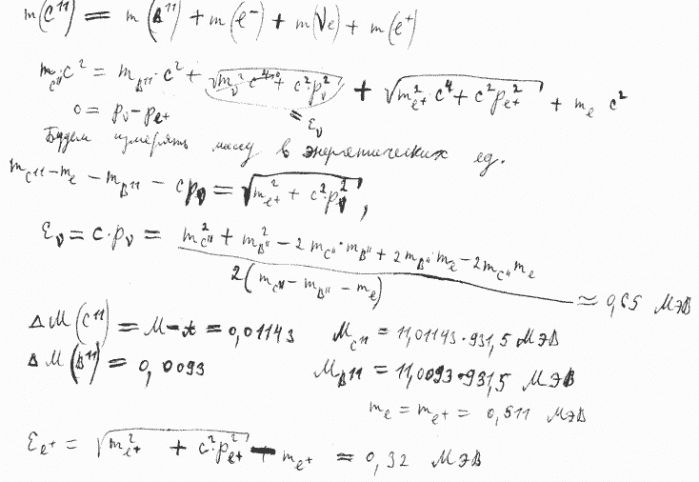 m(C¹¹) = m(B¹¹) + m(e⁻) + m(νe) + m(e⁺)
m_C¹¹ c² = m_B¹¹ · c² + √(m_ν² c⁴ + c² p_ν²) + √(m_e⁺² c⁴ + c² p_e⁺²) + m_e c²
= ε_ν
0 = p_ν - p_e⁺
Будем измерять массу в энергетических ед.
m_C¹¹ - m_e - m_B¹¹ - cp_ν = √(m_e⁺² + c² · p_ν²) ,
ε_ν = c · p_ν = (m_C¹¹² + m_B¹¹² - 2 m_C¹¹ · m_B¹¹ + 2 m_B¹¹ m_e - 2 m_C¹¹ m_e) / 2(m_C¹¹ - m_B¹¹ - m_e) ≈ 0,65 МэВ
Δ M(C¹¹) = M - A = 0,01143 M_C¹¹ = 11,01143 · 931,5 МэВ
Δ M(B¹¹) = 0,0093 M_B¹¹ = 11,0093 · 931,5 МэВ
m_e = m_e⁺ = 0,511 МэВ
ε_e⁺ = √(m_e⁺² + c² p_e⁺²) - m_e⁺ = 0,32 МэВ